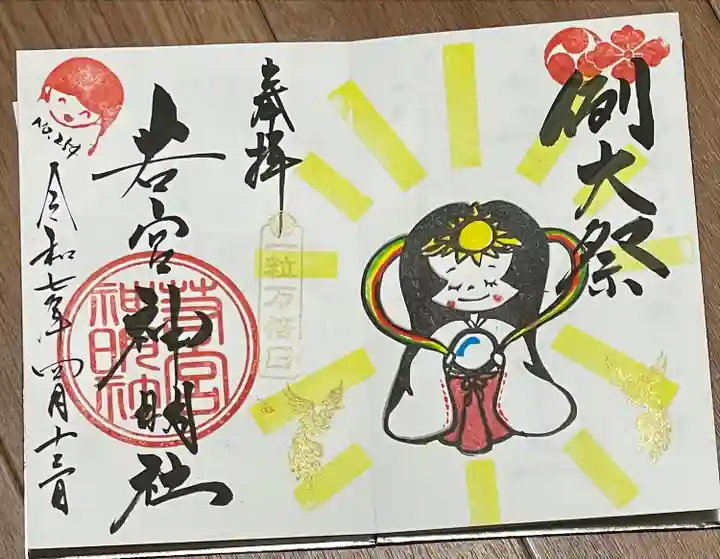 例大祭
奉拝
一粒万倍日
若宮神明社
若宮神明社
NO.254
令和七年四月十三日